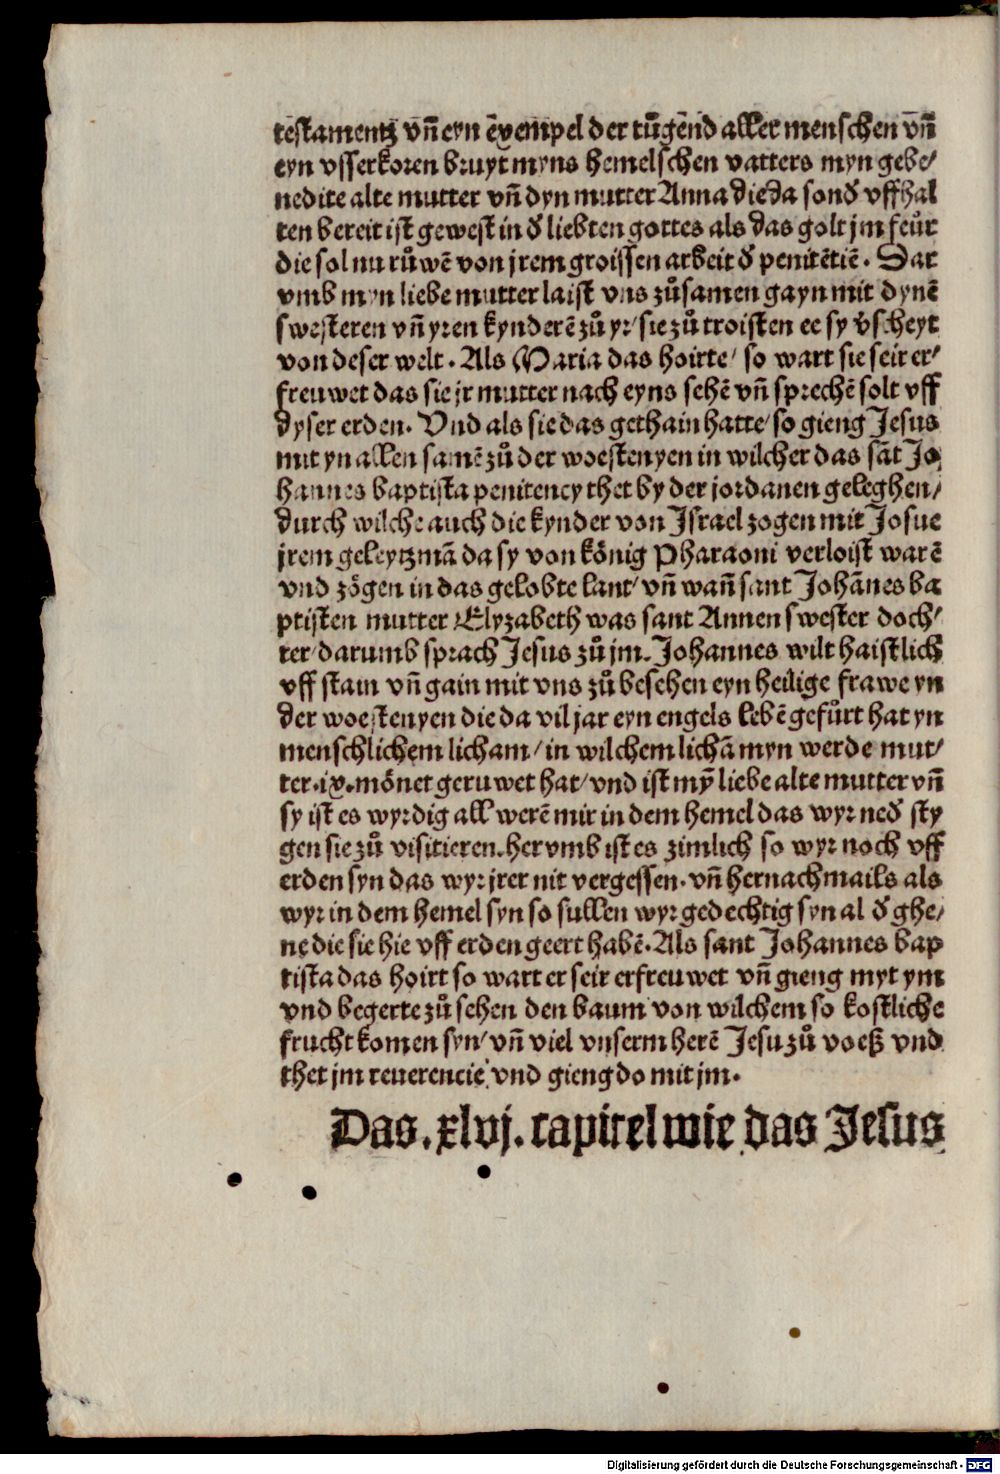 testamentz vñ eyn exempel der tůgēd aller menschen vñ
eyn vsserkoren bruyt myns hemelschen vatters myn gebe/
nedite alte mutter vñ dyn mutter Anna die da sond̓ vffhal
ten bereit ist gewest in d̓ liebten gottes als das golt jm feůr
die sol nu růwē von jrem groissen arbeit d̓ penitētiē. Dar
vmb myn liebe mutter laist vns zůsamen gayn mit dynē
swesteren vñ yren kynderē zů yr/ sie zů troisten ee sy v̓scheyt
von deser welt. Als Maria das hoirte/ so wart sie seir er/
freuwet das sie jr mutter nach eyns sehē vñ sprechē solt vff
dyser erden. Vnd als sie das gethain hatte/ so gieng Jesus
mit yn allen samē zů der woestenyen in wilcher das sāt Jo
hannes baptista penitency thet by der jordanen geleghen/
durch wilche auch die kynder von Israel zogen mit Josue
jrem geleytzmā da sy von kȯnig Pharaoni verloist warē
vnd zȯgen in das gelobte lant/ vñ wañ sant Johānes ba
ptisten mutter Elyzabeth was sant Annen swester doch/
ter/ darumb sprach Jesus zů jm. Johannes wilt haistlich
vff stain vñ gain mit vns zů besehen eyn heilige frawe yn
der woestenyen die da vil jar eyn engels lebē gefůrt hat yn
menschlichem licham/ in wilchem lichā myn werde mut/
ter .ix. mȯnet geruwet hat/ vnd ist mȳ liebe alte mutter vñ
sy ist es wyrdig all werē mir in dem hemel das wyr ned̓ sty
gen sie zů visitieren. her vmb ist es zimlich so wyr noch vff
erden syn das wyr jrer nit vergessen. vñ hernachmails als
wyr in dem hemel syn so sullen wyr gedechtig syn al d̓ ghe/
ne die sie hie vff erden geert habē. Als sant Johannes bap
tista das hoirt so wart er seir erfreuwet vñ gieng myt ym
vnd begerte zů sehen den baum von wilchem so kostliche
frucht komen syn/ vñ viel vnserm herē Jesu zů voeß vnd
thet jm reuerencie vnd gieng do mit jm.
Das .xlvj. capitel wie das Jesus
Digitalisierung gefördert durch die Deutsche Forschungsgemeinschaft - DFG